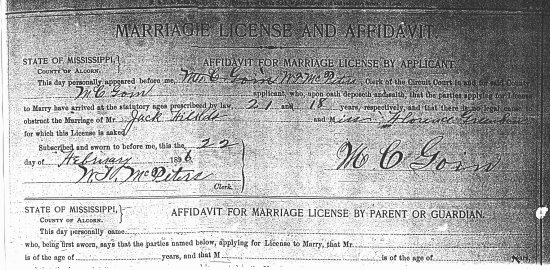 MARRIAGE LICENSE AND AFFIDAVIT.
STATE OF MISSISSIPPI, AFFIDAVIT FOR MARRIAGE LICENSE BY APPLICANT.
COUNTY OF ALCORN.
This day personally appeared before me, M C Goin W. H. McPeters Clerk of the Circuit Court in and
M C Goin applicant, who, upon oath deposeth and saith, that the parties applying for
to Marry have arrived at the statutory ages prescribed by law, 21 and 18 years, respectively, and that there is no legal
obstruct the Marriage of Mr Jack Fields and Miss Florence
for which this License is asked
Subscribed and sworn to before me, this the 22
day of February 1896 M C Goin
W. H. McPeters
Clerk.
STATE OF MISSISSIPPI, AFFIDAVIT FOR MARRIAGE LICENSE BY PARENT OR GUARDIAN.
COUNTY OF ALCORN.
This day personally came
who, being first sworn, says that the parties named below, applying for License to Marry, that Mr.
is of the age of years, and that M is of the age of years